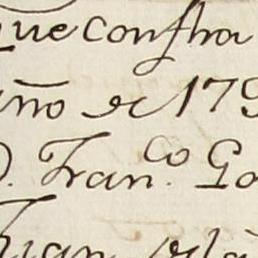 que consta
año de 179
D. Fran.co Go
Juan